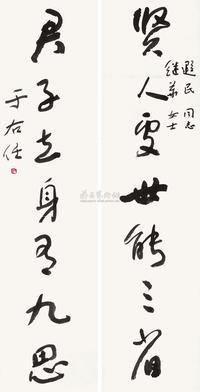 遐民同志
女士
賢人處世能三省
君子立身有九思
于右任